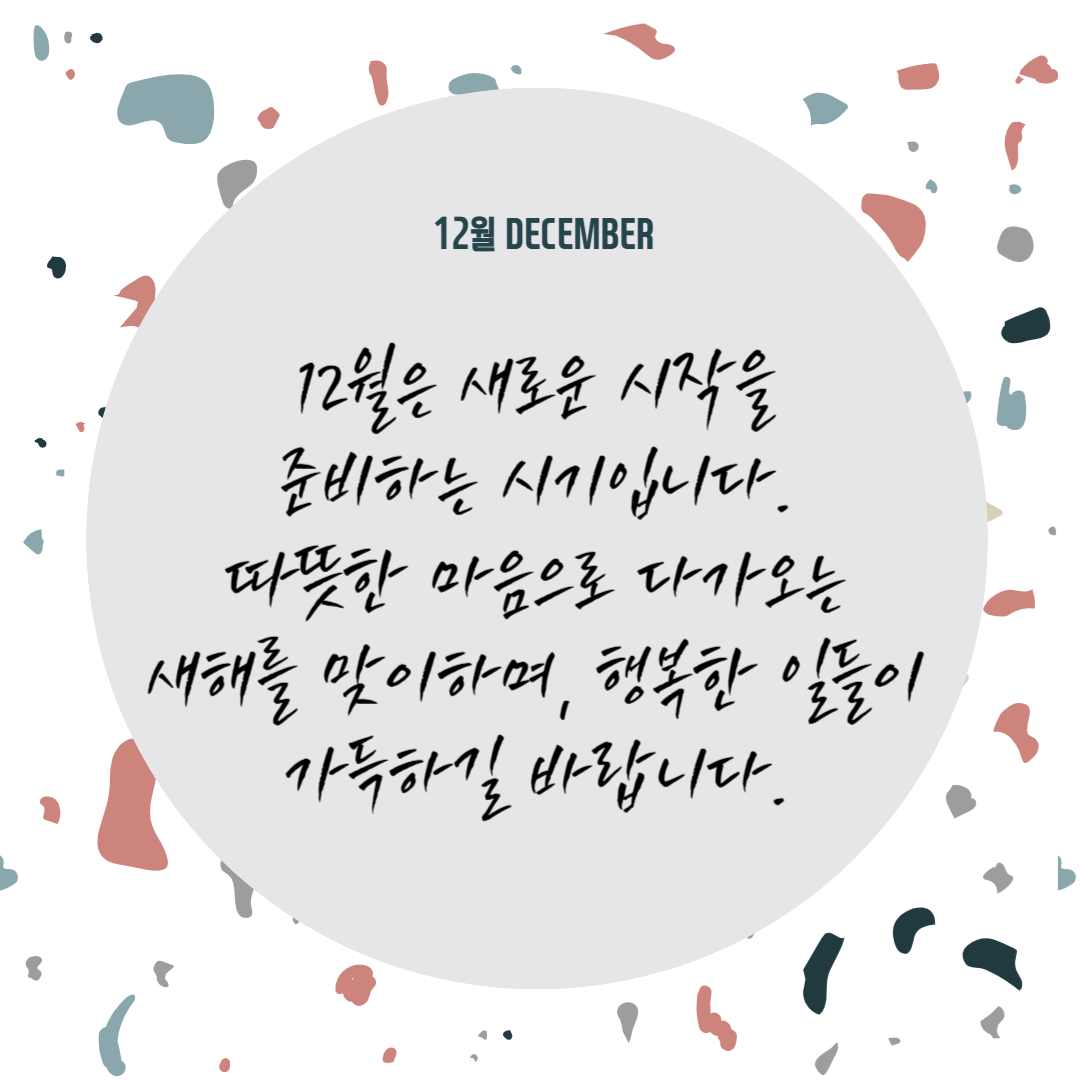 12월 DECEMBER
12월은 새로운 시작을
준비하는 시기입니다.
따뜻한 마음으로 다가오는
새해를 맞이하며, 행복한 일들이
가득하길 바랍니다.